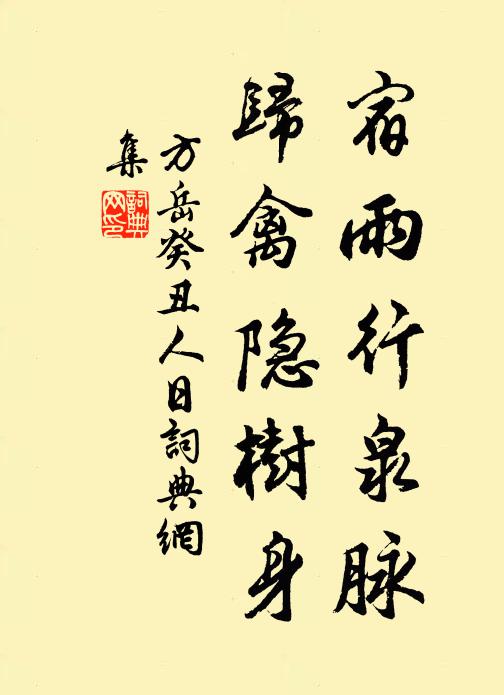 宿雨行泉脉
歸禽隐樹身
方岳癸丑人日詞典網
集
詞典
网印